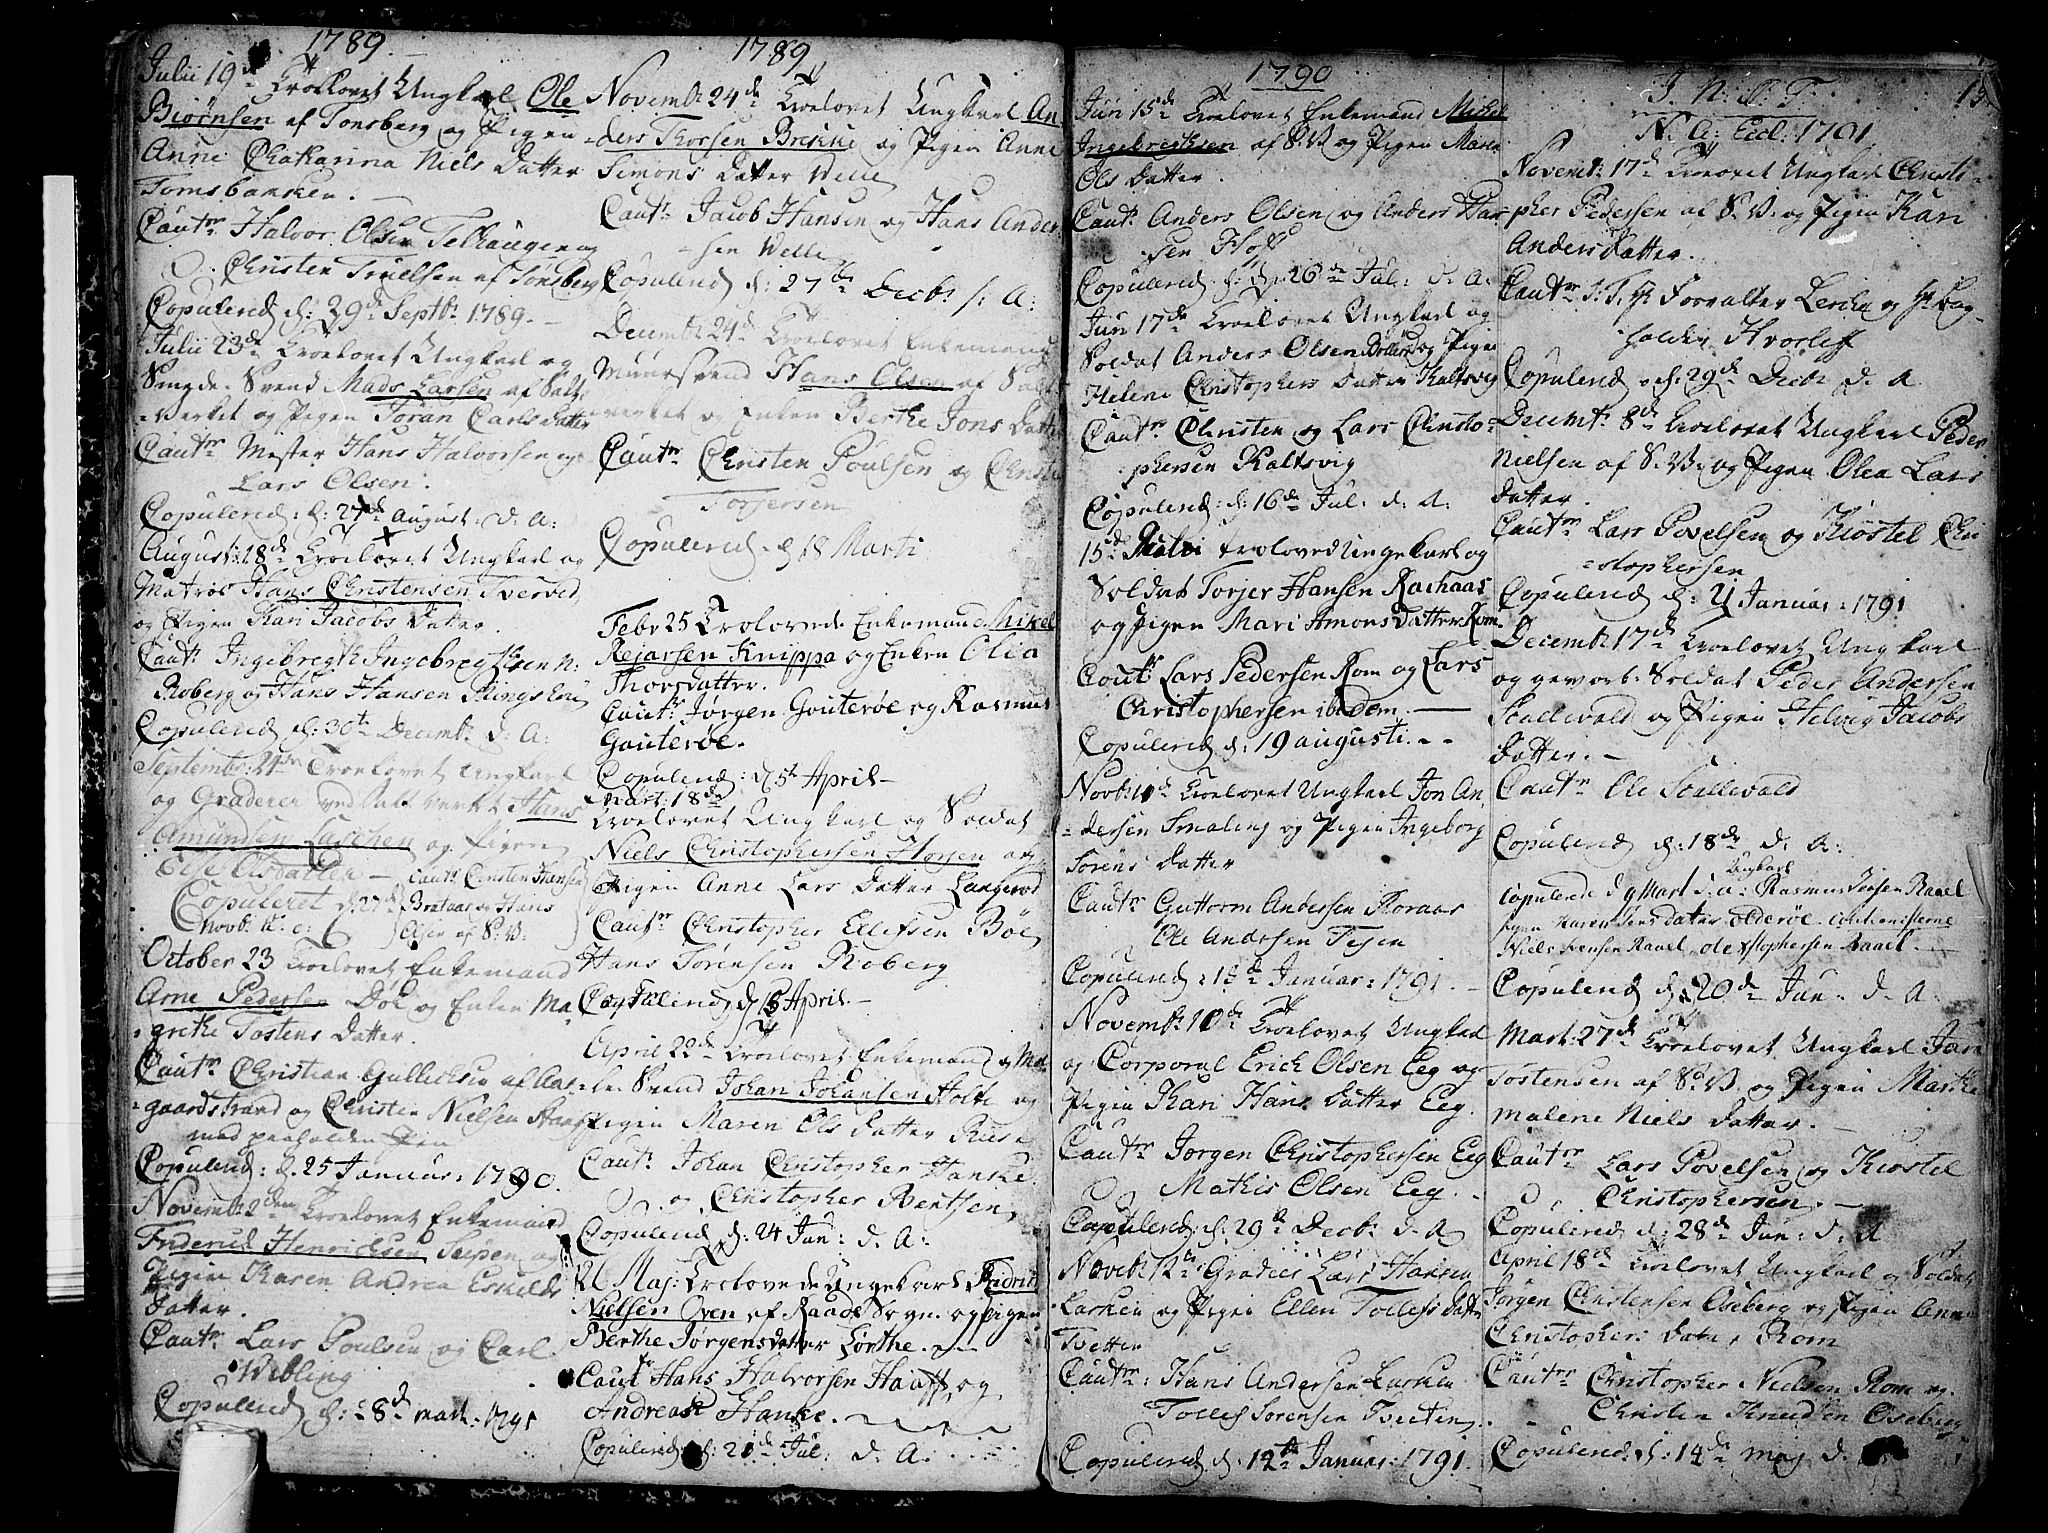 1789.
Julii 19de Troelovet Ungkarl Ole
Biørnsen af Tonsberg og Pigen
Anne Chatharina Niels Datter
Tomsbakken.
Cautr Halvor Olsen Telhaugen og
Christen Truelsen af Tonsberg
Copulered d: 29de Septbr 1789.
Julii 23de Troelovet Ungkarl og
Smede-Svend Mads Larsen af Salt-
Verket og Pigen Joran Carls Datter
Cautr Mester Hans Halvorsen og
Lars Olsen.
Copulered: d: 27de August: d: A:
August: 18de Troelovet Ungkarl og
Matros Hans Christensen Tverved
og Pigen Kari Jacobs Datter.
Cautr Ingebregth Ingebregthsen N:
Roberg og Hans Hansen
Copulered d: 30te Decembr d: A:
Septembr: 24de Troelovet Ungkarl
og Graderer ved Salt Verket Hans
Amundsen Laschen og Pigen
Else Olsdatter — Cautr Christen Hansen
Copuleret d: 27de Brataas og Hans
Novbr Olsen af S: V:
October 23 Troelovet Enkemand
Arne Pedersen Døe og Enken Ma-
grethe Tostens Datter.
Cautr Christian Gullichsen af Aas-
gaardstrand og Christen Nielsen
med paaholden Pen
Copulered: d. 25 Januar: 1790.
Novembr 2den Troelovet Enkemand
Friderich Henrichsen og
Pigen Karen Andrea Eskilds
Datter.
Cautr Lars Poulsen og Carl
Wibling
Copulered d: 28de Mart: 1791
1789
Novembr 24de Troelovet Ungkarl An-
ders Thorsen Brekke og Pigen Anne
Simons Datter Velle
Cautr Jacob Hansen og Hans Ander-
sen Welle
Copulered d: 27de Decbr s: A:
Decembr 24de Troelovet Enkemand
Muursvend Hans Olsen af Salt-
verket og Enken Berthe Jons Datter
Cautr Christen Poulsen og Christen
Torjersen
Copulered d 18 Marti
Febr 25 Trolovede Enkemand Mikel
Rejarsen Knippa og Enken Olea
Thorsdatter.
Cautr Jørgen Gouterøe og Rasmus
Gouterøe.
Copulered: d 5te April —
Mart: 18de
Troelovet Ungkarl og Soldat
Niels Christophersen Horjen og
Pigen Anne Lars Datter Langerød
Cautr Christopher Ellefsen Böe
Hans Sørensen Roberg
Copulered d 15 April —
April 22de Troelovet Enkemand og Møl-
le-Svend Johan Johansen Holte og
Pigen Maren Ols Datter
Cautr Johan Christopher Hanske
og Christopher Bentsen
Copulered d: 24 Jun: d: A:
21 Maj: Trolovede Ungekarl Fridrich
Nielsen Oven af Raade Sogn og Pigen
Berthe Jørgensdatter Lørthe.
Cautr Hans Halvorsen Haaff og
Andreas Hanke.
Copulered d: 21de Jul: d: A:
1790
Jun 15de Troelovet Enkemand Mickel
Ingebregthsen af S: V: og Pigen Maren
Ols Datter.
Cautr Anders Olsen og Anders
sen Hoff
Copulered d: 26de Jul: d: A:
Jun 17de Troelovet Ungkarl og
Soldat Anders Olsen og Pigen
Helene Christophers Datter Kaltsvig
Cautr Christen og Lars Christo-
phersen Kaltsvig
Copulered d: 16de Jul: d: A:
15de troloved Ungekarl og
Soldat Torjer Hansen Rachaas
og Pigen Mari Amons Datter Rom
Cautr Lars Pedersen Rom og Lars
Christophersen ibidem.
Copulered d: 19 augusti.
Novbr 10de Troelovet Ungkarl Jon An-
dersen Smaling og Pigen Ingeborg
Sørens Datter
Cautr Guttorm Andersen Roraas
Ole Andersen Tejen
Copulered: 13de Januar: 1791.
Novembr 10de Troelovet Ungkarl
og Corporal Erich Olsen Eeg og
Pigen Kari Hans Datter Eeg.
Cautr Jørgen Christophersen Eeg
Mathis Olsen Eeg.
Copulered: d: 29de Decbr d: A
Novbr 12te Lars Hansen
Lasken og Pigen Ellen Tollefs Datter
Tvetten
Cautr Hans Andersen Lasken
Tollef Sørensen Tvetten.
Copulered d: 14te Januar: 1791.
J. N. J. T.
N. A: Eccl: 1791
Novembr: 17de Troelovet Ungkarl Christo-
pher Pedersen af S: V: og Pigen Kari
Anders Datter.
Cautr S: T: Hr Forvalter Lerche og Hr Bog-
holder Hvorlef
Copulered d: 29de Decbr d. A
Decembr 8de Troelovet Ungkarl Peder
Nielsen af S: V: og Pigen Olea Lars
Datter.
Cautr Lars Povelsen og Kiøstel Chri-
stophersen
Copulered d: 21 Januar: 1791
Decembr 17de Troelovet Ungkarl
og gevorb: Soldat Peder Andersen
Scallevald og Pigen Helvig Jacobs
Datter. —
Cautr Ole Scallevald
Copulered d: 18de d: A:
Ungkarl
Copulerede d 9 Mart d. a: Rasmus Ravel
Pigen Karen Jens datter Olderøe. Cautionisterne
Niels Jensen Ravel, ole Xstophersen Ravel.
Copulered d: 20de Jun: d. A.
Mart: 27de Troelovet Ungkarl Jan
Tostensen af S: V: og Pigen Marthe
Malene Niels Datter.
Cautr Lars Povelsen og Kiøstel
Christophersen.
Copulered d: 28de Jun: d: A
April 18de Troelovet Ungkarl og Soldat
Jørgen Christensen Oseberg og Pigen Anne
Christophers Datter Rom
Cautr Christopher Nielsen Rom og
Christen Knudsen Oseberg
Copulered: d: 14de Maj d.